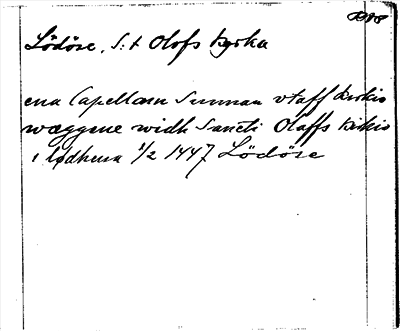 Lödöse, S:t Olofs kyrka
ena Capellam sunnan vtaff kirkio
wæggene widh Sancti Olaffs kirkio
i lydhusa 1/2 1447 Lödöse